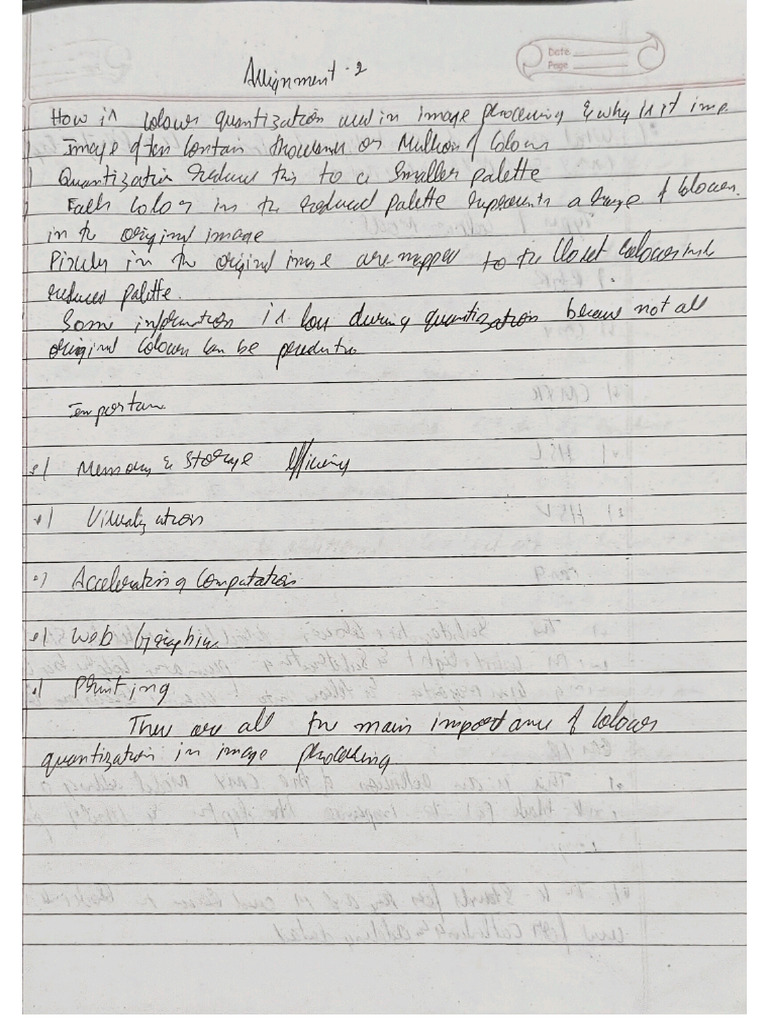 Date
Page
Assignment - 2
How is colour quantization used in image processing & why is it imp
Image often contain thousands or Millions of Colours
Quantization reduce this to a smaller palette
Each color in the reduced palette represents a range of colours
in the original image
Pixels in the original image are mapped to the closet colour in the
reduced palette.
Some information is loss during quantization because not all
original colours can be
Importan
Memory & Storage efficiency
Visualization
Accelerating Computation
Web Graphics
Printing
These are all the main importance of colour
quantization in image processing